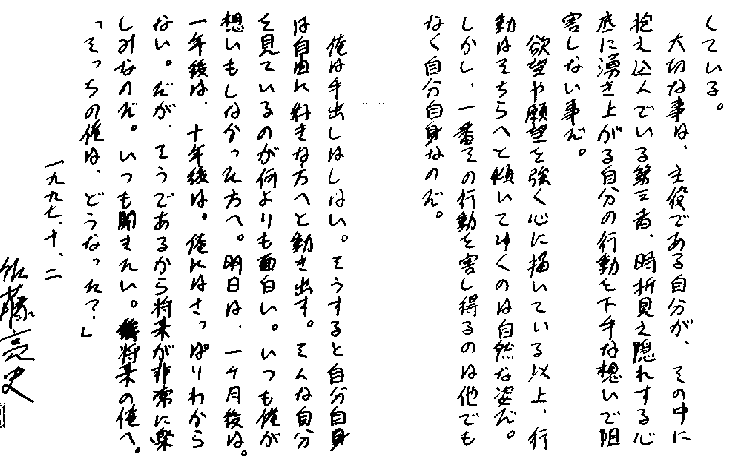 くている。
大切な事は、主役である自分が、その中に
抱え込んでいる第三者、時折見え隠れする心
底に湧き上がる自分の行動を下手な想いで阻
害しない事だ。
欲望や願望を強く心に描いている以上、行
動はそちらへと傾いてゆくのは自然な姿だ。
しかし、一番その行動を害し得るのは他でも
なく自分自身なのだ。
俺は手出しはしない。そうすると自分自身
は自由に好きな方へと動き出す。そんな自分
を見ているのが何よりも面白い。いつも俺が
想いもしなかった方へ。明日は、一ヶ月後は。
一年後は、十年後は。俺にはさっぱりわから
ない。だが、そうであるから将来が非常に楽
しみなのだ。いつも聞きたい。将来の俺へ。
「そっちの俺は、どうなった?」
一九九七、十、二
佐藤亮史